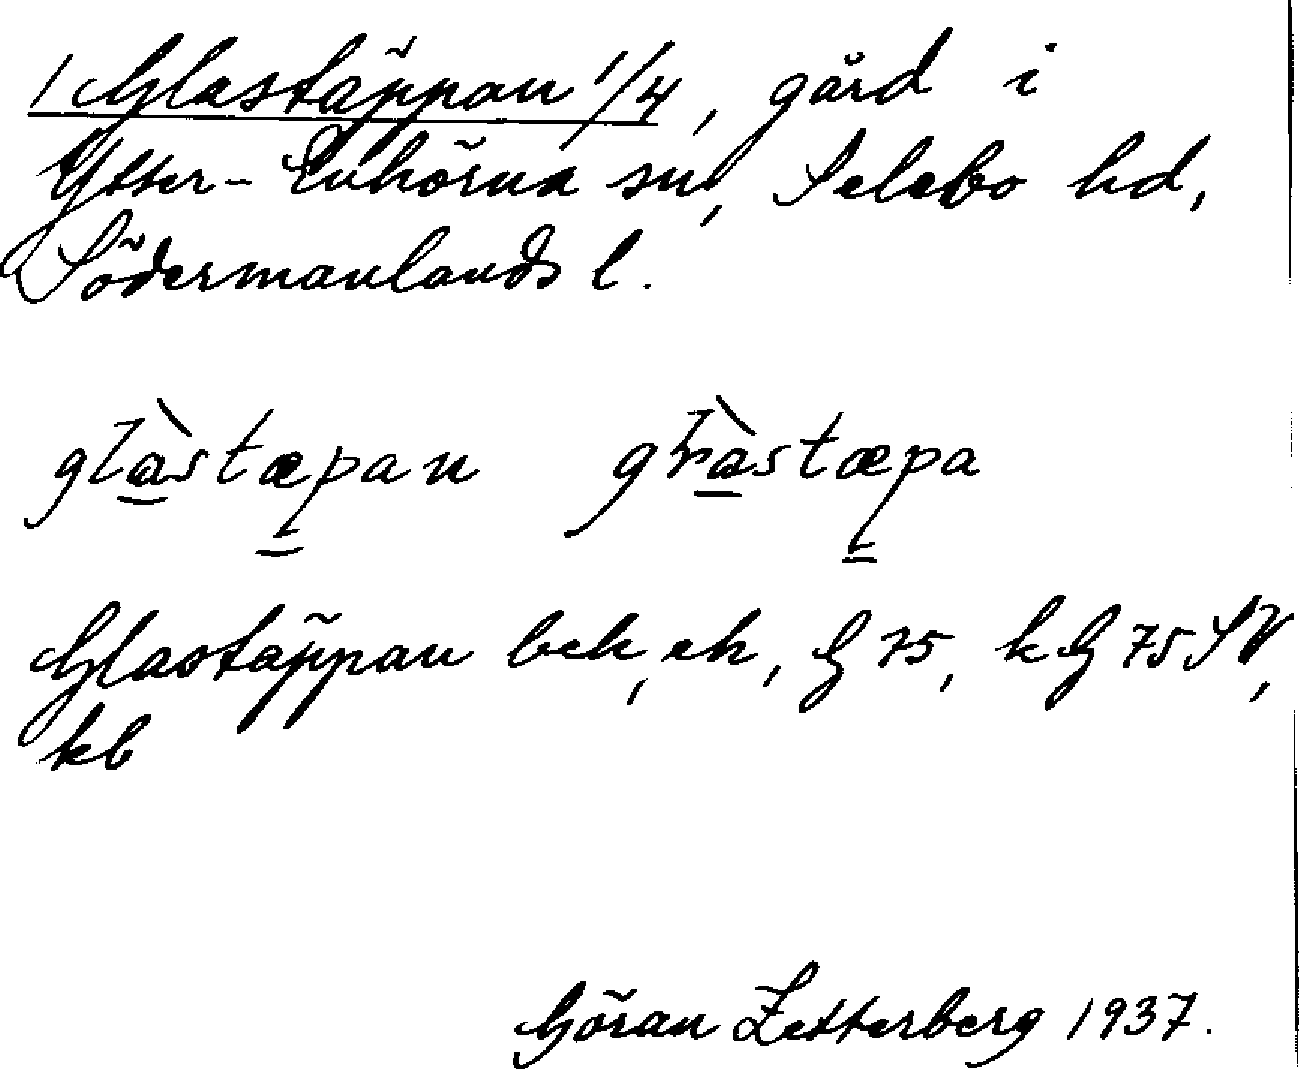 1 Glastäppan 1/4, gård i
Ytter-Enhörna sn, Selebo hd,
Södermanlands l.
glàstæpan gràstæpa
Glastäppan bek, ek, G 75, kG 75 SV,
kb
Göran Zetterberg 1937.